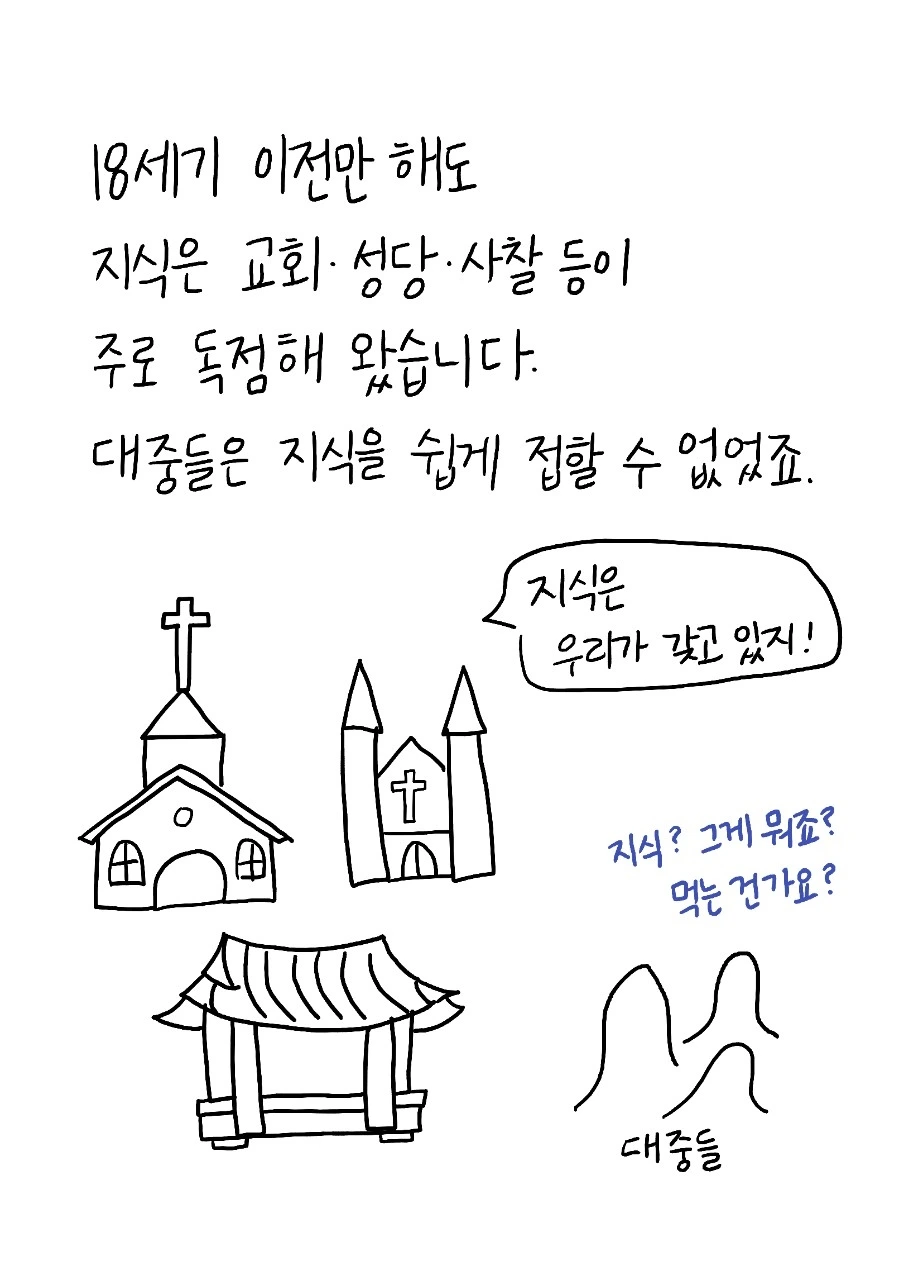 18세기 이전만 해도
지식은 교회·성당·사찰 등이
주로 독점해 왔습니다.
대중들은 지식을 쉽게 접할 수 없었죠.
지식은
우리가 갖고 있지!
지식? 그게 뭐죠?
먹는 건가요?
대중들